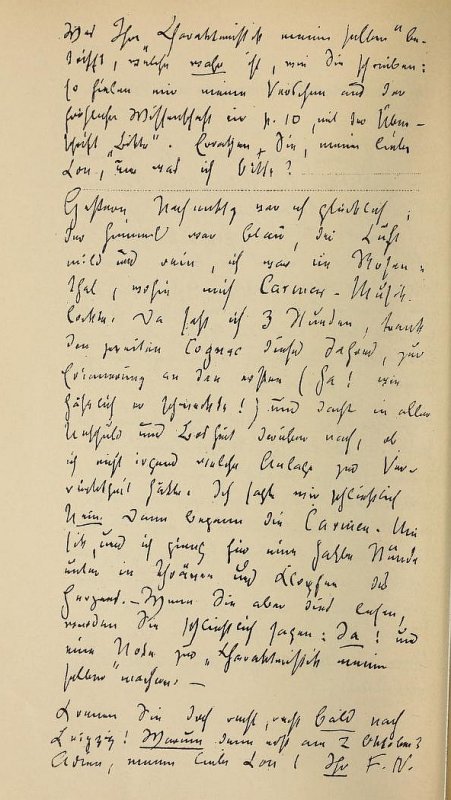 Was Ihre „Charakteristik meiner selber" be-
trifft, welche wahr ist, wie Sie schreiben:
so fielen mir meine Verschen aus der
fröhlichen Wissenschaft ein p. 10, mit der Über-
schrift „Bitte". Errathen Sie, meine liebe
Lou, um was ich bitte?
Gestern Nachmittag war ich glücklich;
der Himmel war blau, die Luft
mild und rein, ich war im Rosen-
thal, wohin mich Carmen-Musik
lockte. Da saß ich 3 Stunden, trank
den zweiten Cognac dieses Jahres, zur
Erinnerung an den ersten (ha! wie
häßlich er schmeckte!) und dachte in aller
Unschuld und Bosheit darüber nach, ob
ich nicht irgend welche Anlage zur Ver-
rücktheit hätte. Ich sagte mir schließlich
Nein. Dann begann die Carmen-Mu-
sik, und ich gieng für eine halbe Stunde
unter in Thränen und Klopfen des
Herzens. – Wenn Sie aber dies lesen,
werden Sie schließlich sagen: Ja! und
eine Note zur „Charakteristik meiner
selber" machen. –
Kommen Sie doch recht, recht bald nach
Leipzig! Warum denn erst am 2 Oktober?
Adieu, meine liebe Lou! Ihr F. N.